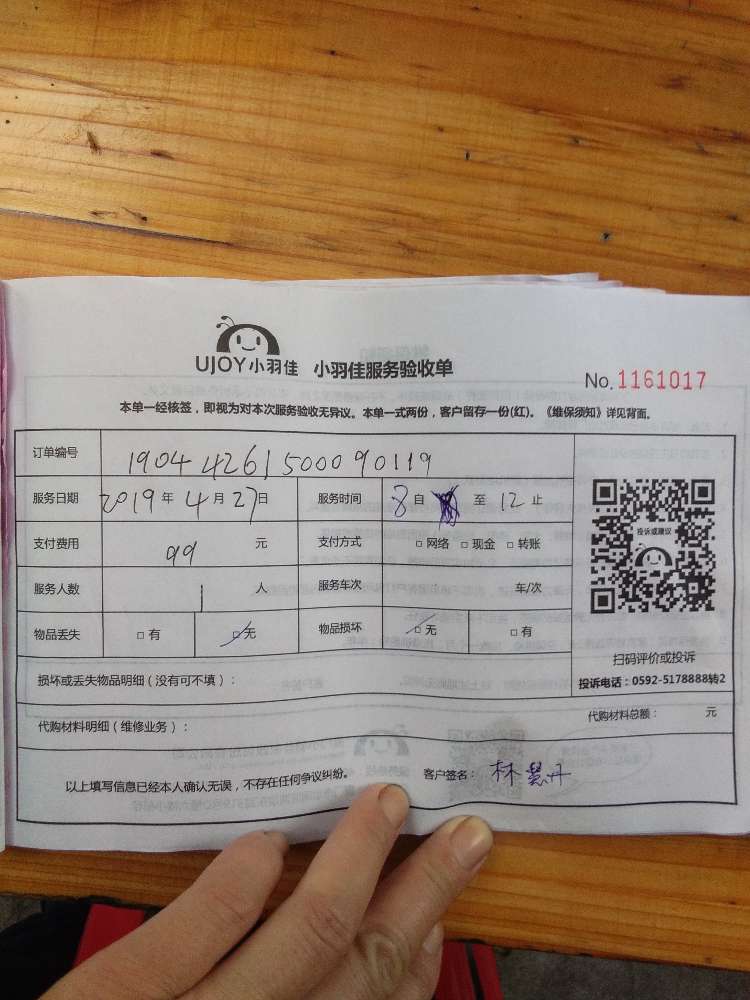 UJOY小羽佳 小羽佳服务验收单
No. 1161017
本单一经核签，即视为对本次服务验收无异议。本单一式两份，客户留存一份(红)。《维保须知》详见背面。
订单编号 1904426150009 0119
服务日期 2019年4月27日 服务时间 8自 至12止
支付费用 99 元 支付方式 □网络 □现金 □转账
服务人数 1 人 服务车次 车/次
物品丢失 □有 □无 物品损坏 □无 □有
投诉或建议
扫码评价或投诉
投诉电话：0592-5178888转2
损坏或丢失物品明细（没有可不填）：
代购材料明细（维修业务）： 代购材料总额： 元
以上填写信息已经本人确认无误，不存在任何争议纠纷。 客户签名： 林慧丹